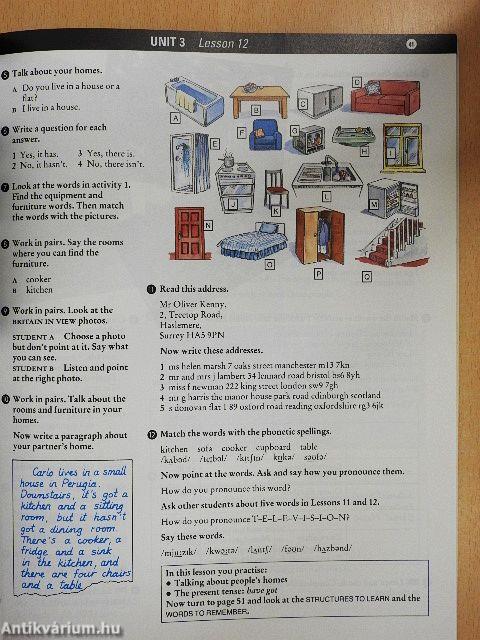 UNIT 3 Lesson 12
5 Talk about your homes.
A Do you live in a house or a
flat?
B I live in a house.
6 Write a question for each
answer.
1 Yes, it has. 3 Yes, there is.
2 No, it hasn't. 4 No, there isn't.
7 Look at the words in activity 1.
Find the equipment and
furniture words. Then match
the words with the pictures.
8 Work in pairs. Say the rooms
where you can find the
furniture.
A cooker
B kitchen
9 Work in pairs. Look at the
BRITAIN IN VIEW photos.
STUDENT A Choose a photo
but don't point at it. Say what
you can see.
STUDENT B Listen and point
at the right photo.
10 Work in pairs. Talk about the
rooms and furniture in your
homes.
Now write a paragraph about
your partner's home.
Carlo lives in a small
house in Perugia.
Downstairs, it's got a
kitchen and a sitting
room, but it hasn't
got a dining room.
There's a cooker, a
fridge and a sink
in the kitchen, and
there are four chairs
and a table
A
B
C
D
E
F
G
H
I
J
K
L
M
N
O
P
Q
11 Read this address.
Mr Oliver Kenny,
2, Treetop Road,
Haslemere,
Surrey HA5 9PN
Now write these addresses.
1 ms helen marsh 7 oaks street manchester m13 7kn
2 mr and mrs j lambert 34 lennard road bristol bs6 8yh
3 miss f newman 222 king street london sw9 7gh
4 mr g harris the manor house park road edinburgh scotland
5 s donovan flat 1 89 oxford road reading oxfordshire rg3 6jk
12 Match the words with the phonetic spellings.
kitchen sofa cooker cupboard table
Now point at the words. Ask and say how you pronounce them.
How do you pronounce this word?
Ask other students about five words in Lessons 11 and 12.
How do you pronounce T-E-L-E-V-I-S-I-O-N?
Say these words.
In this lesson you practise:
• Talking about people's homes
• The present tense: have got
Now turn to page 51 and look at the STRUCTURES TO LEARN and the
WORDS TO REMEMBER.
Antikvárium.hu